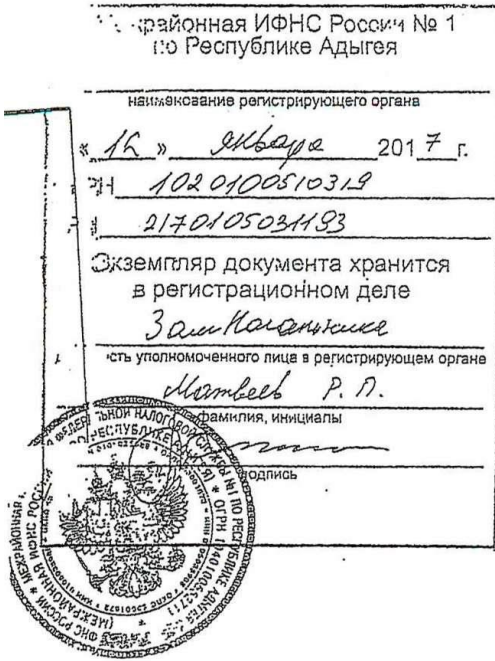 районная ИФНС России № 1
по Республике Адыгея
наименование регистрирующего органа
« 12 » января 2017 г.
РН 1020100510319
2170105031193
Экземпляр документа хранится
в регистрационном деле
Зам Начальника
сть уполномоченного лица в регистрирующем органе
Матвеев Р. П.
фамилия, инициалы
подпись